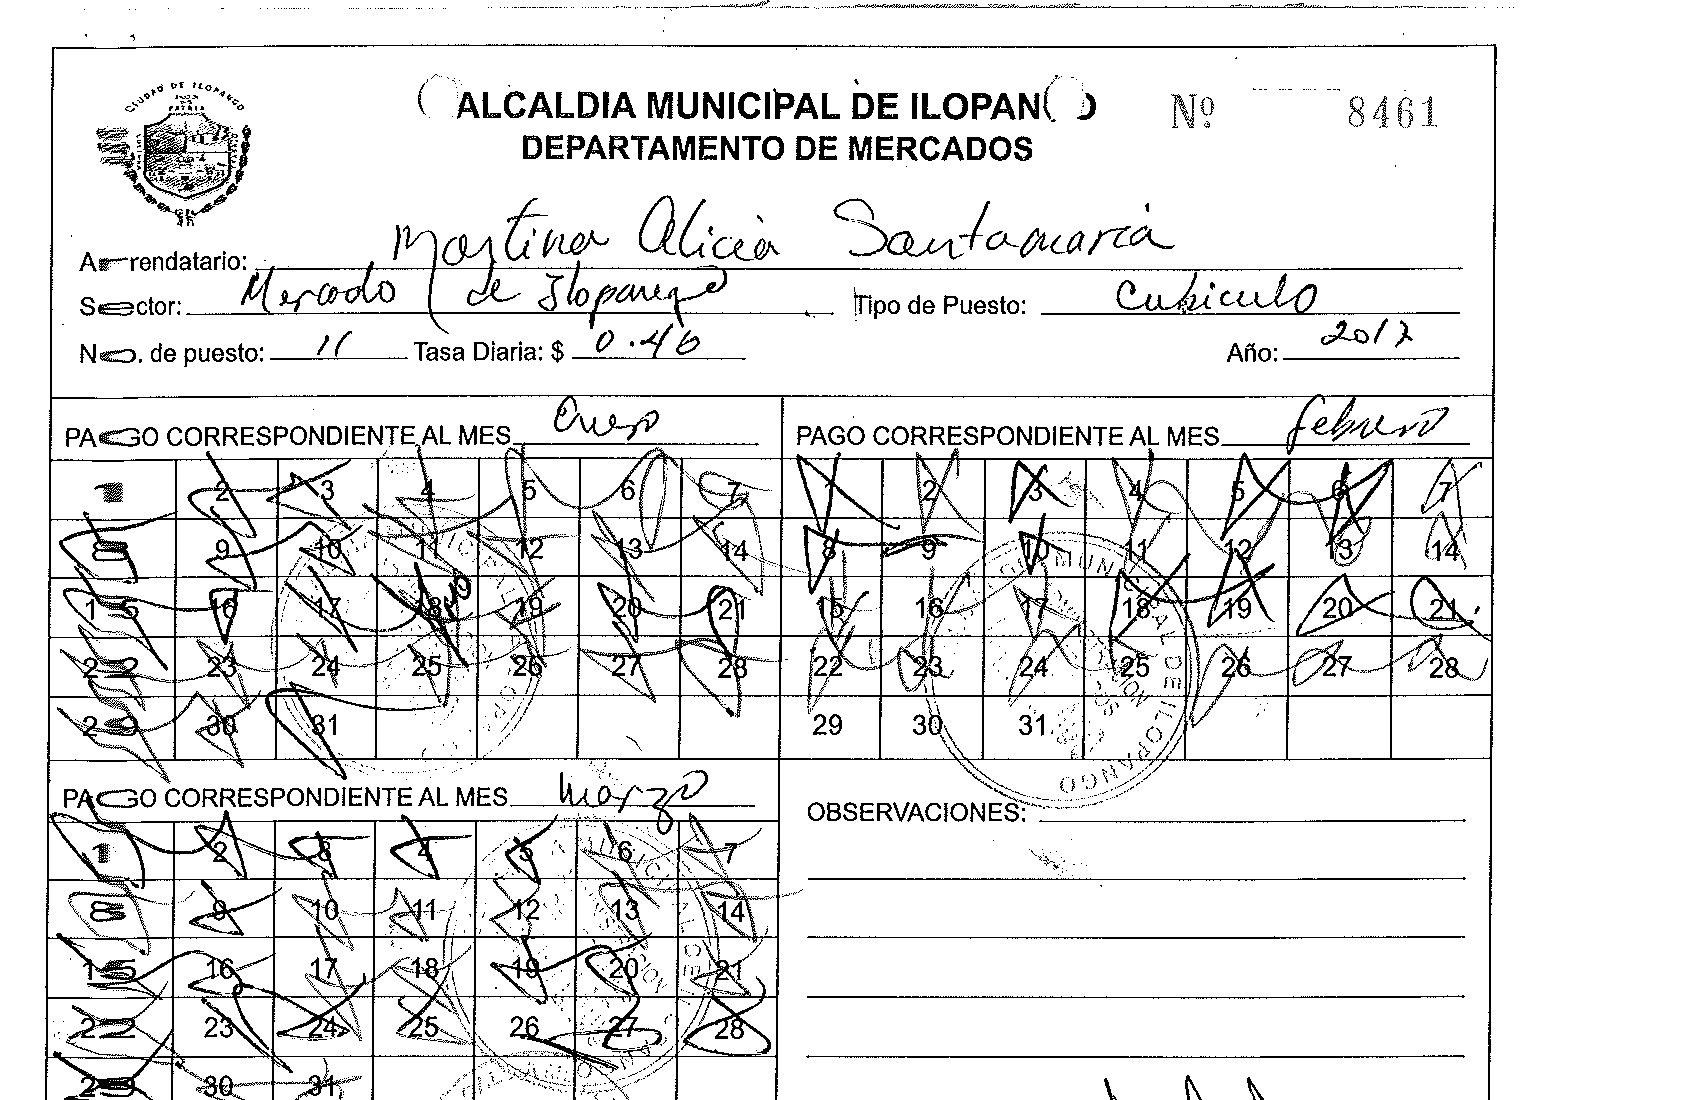 CIUDAD DE ILOPANGO
ALCALDIA MUNICIPAL DE ILOPAN O
DEPARTAMENTO DE MERCADOS
Nº 8461
Arrendatario: Martina Alicia Santamaria
Sector: Mercado de Ilopango Tipo de Puesto: Cubiculo
No. de puesto: 11 Tasa Diaria: $ 0.46 Año: 2017
PAGO CORRESPONDIENTE AL MES Enero
1 2 3 4 5 6 7
8 9 10 11 12 13 14
15 16 17 18 19 20 21
22 23 24 25 26 27 28
29 30 31
PAGO CORRESPONDIENTE AL MES febrero
1 2 3 4 5 6 7
8 9 10 11 12 13 14
15 16 17 18 19 20 21
22 23 24 25 26 27 28
29 30 31
PAGO CORRESPONDIENTE AL MES marzo
1 2 3 4 5 6 7
8 9 10 11 12 13 14
15 16 17 18 19 20 21
22 23 24 25 26 27 28
29 30 31
OBSERVACIONES: